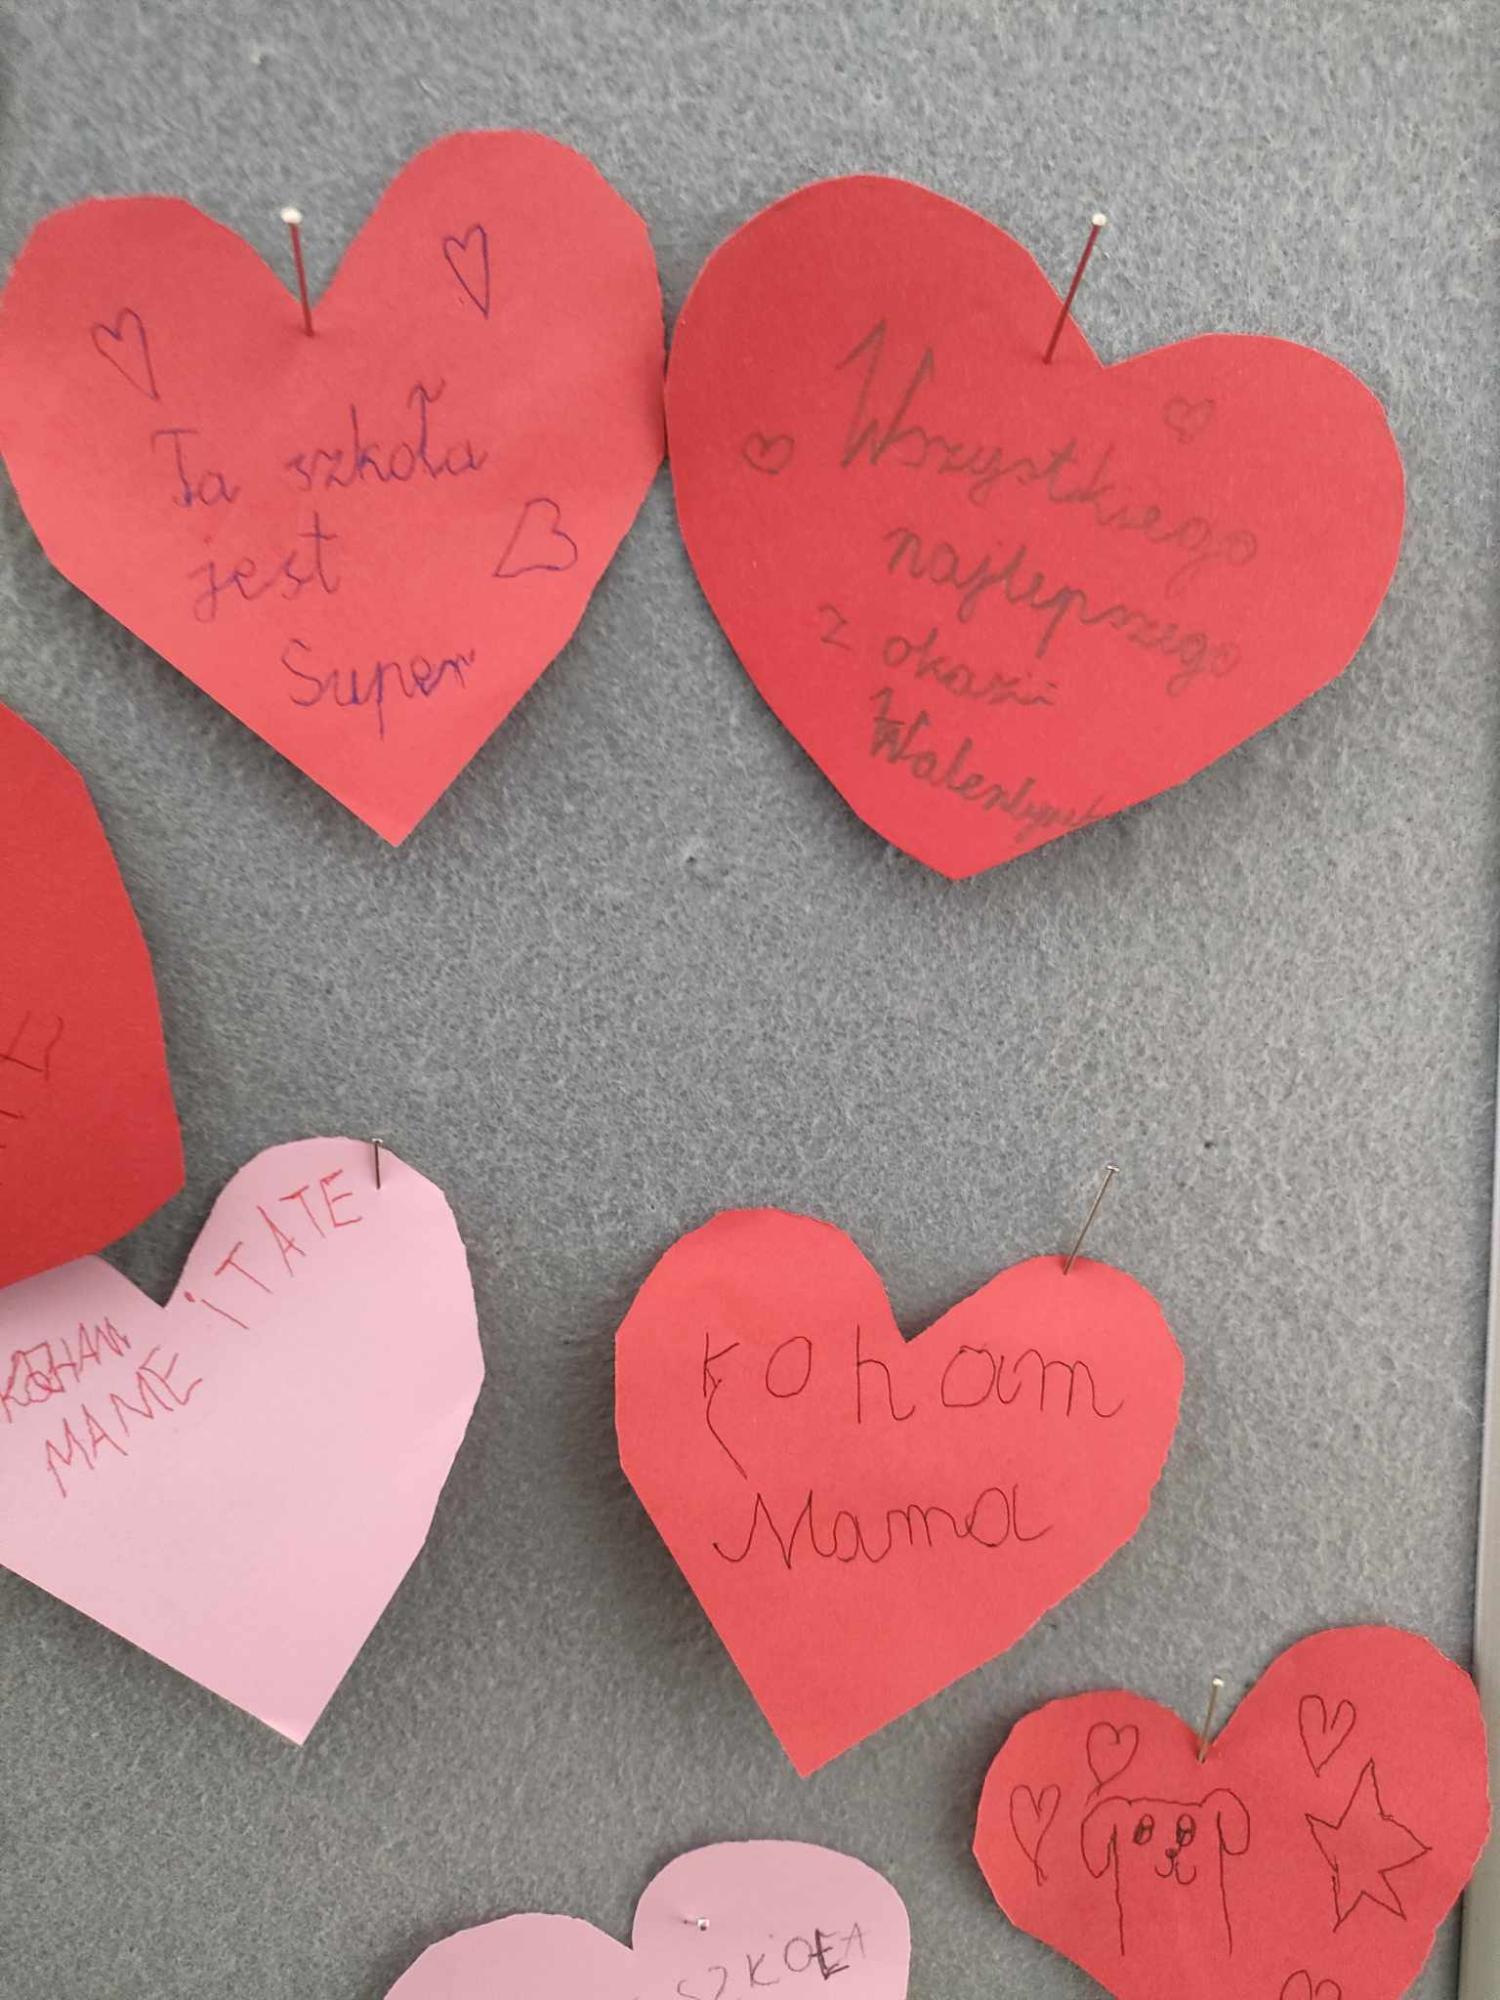 Ta szkoła
jest
Super
Wszystkiego
najlepszego
z okazii
Walentynek
KOHAM
MAME
i TATE
koham
Mama
SZKOŁA